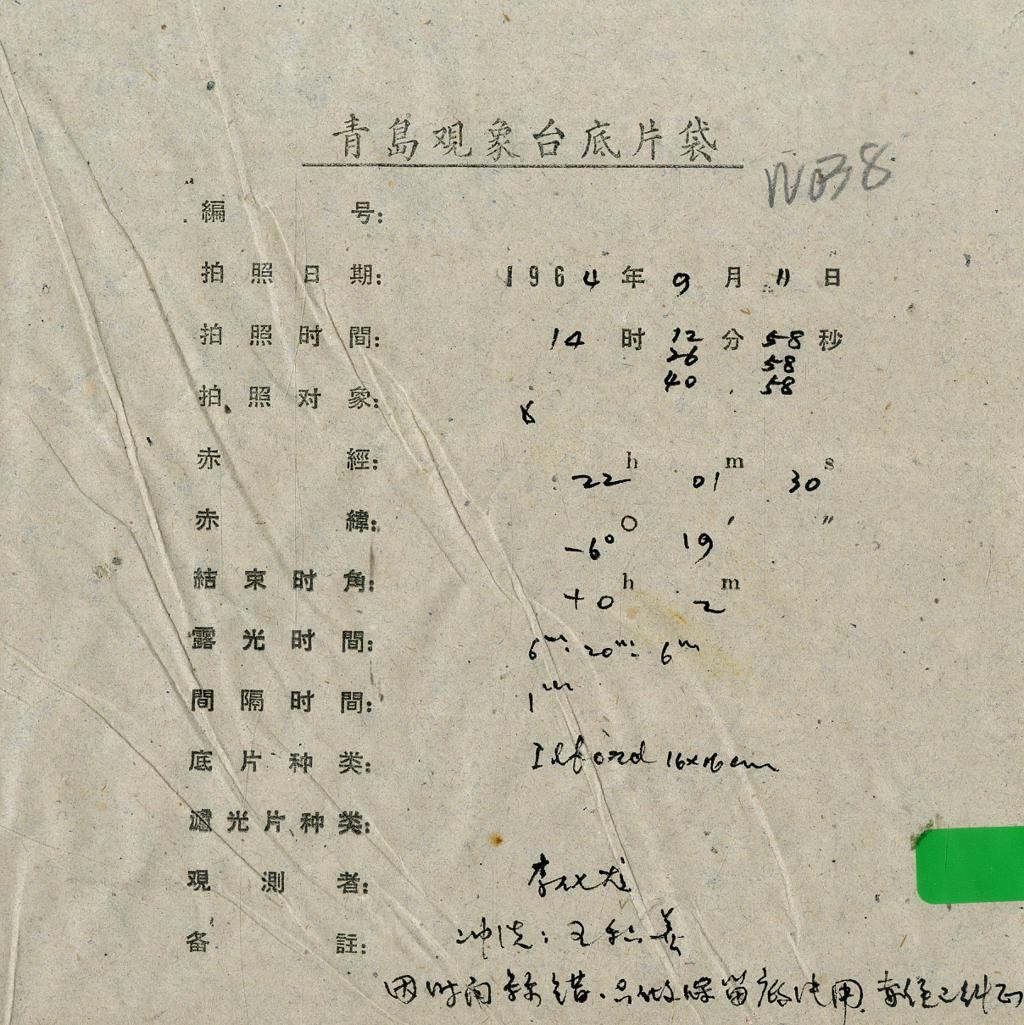 青島观象台底片袋
NO38
編号:
拍照日期: 1964年9月11日
拍照时間: 14时12分58秒
26 58
40 58
拍照对象: 8
赤經: 22h 01m 30s
赤緯: -6° 19′ ″
結束时角: +0h 2m
露光时間: 6m: 20m: 6m
間隔时間: 1m
底片种类: Ilford 16x16cm
濾光片种类:
观測者: 李
备註: 冲洗:王 美
因时间 错.只做保留底片用